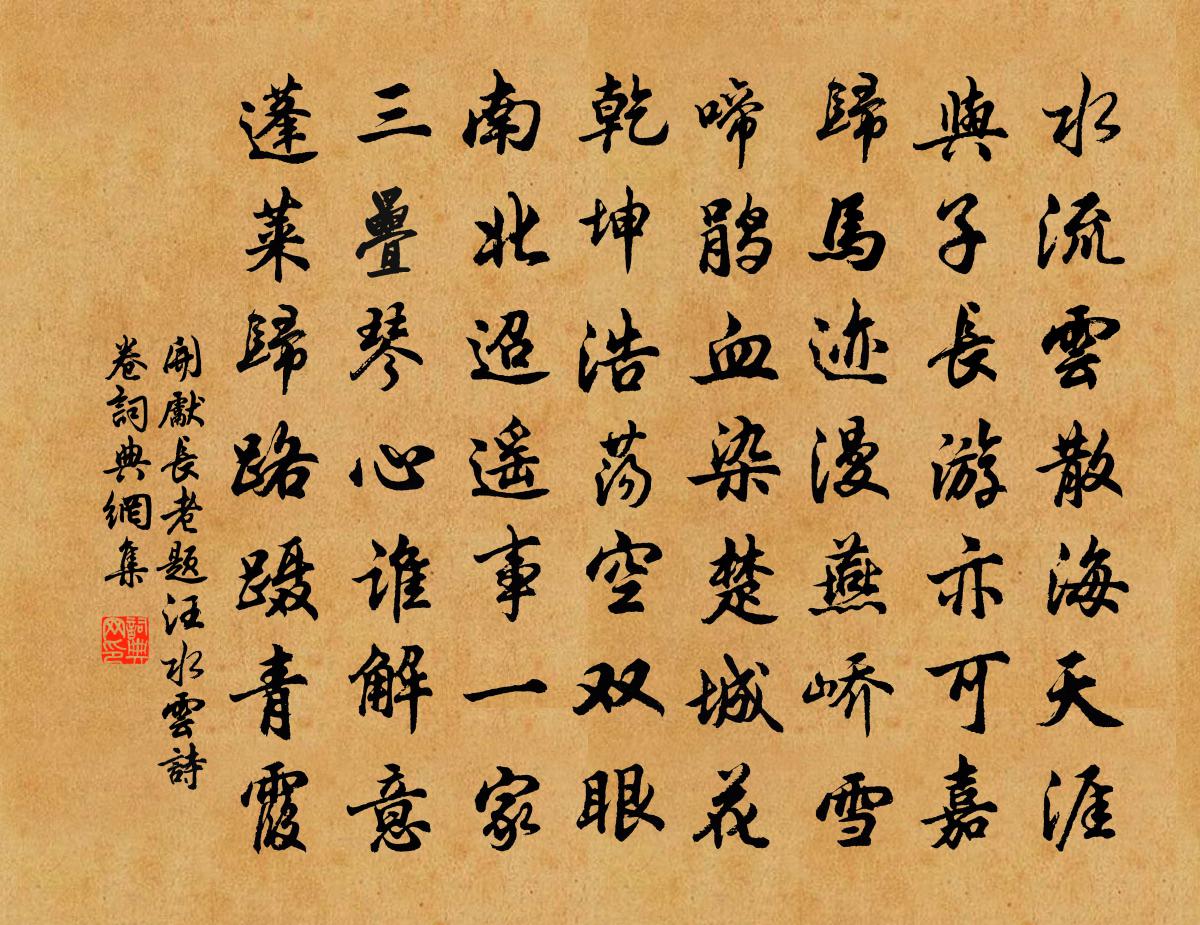 水流雲散海天涯
與子長游亦可嘉
歸馬迹漫燕峤雪
啼鹃血染楚城花
乾坤浩荡空双眼
南北迢遥事一家
三疊琴心谁解意
蓬萊歸路蹑青霞
開獻長老题汪水雲詩
卷詞典網集
詞典网印